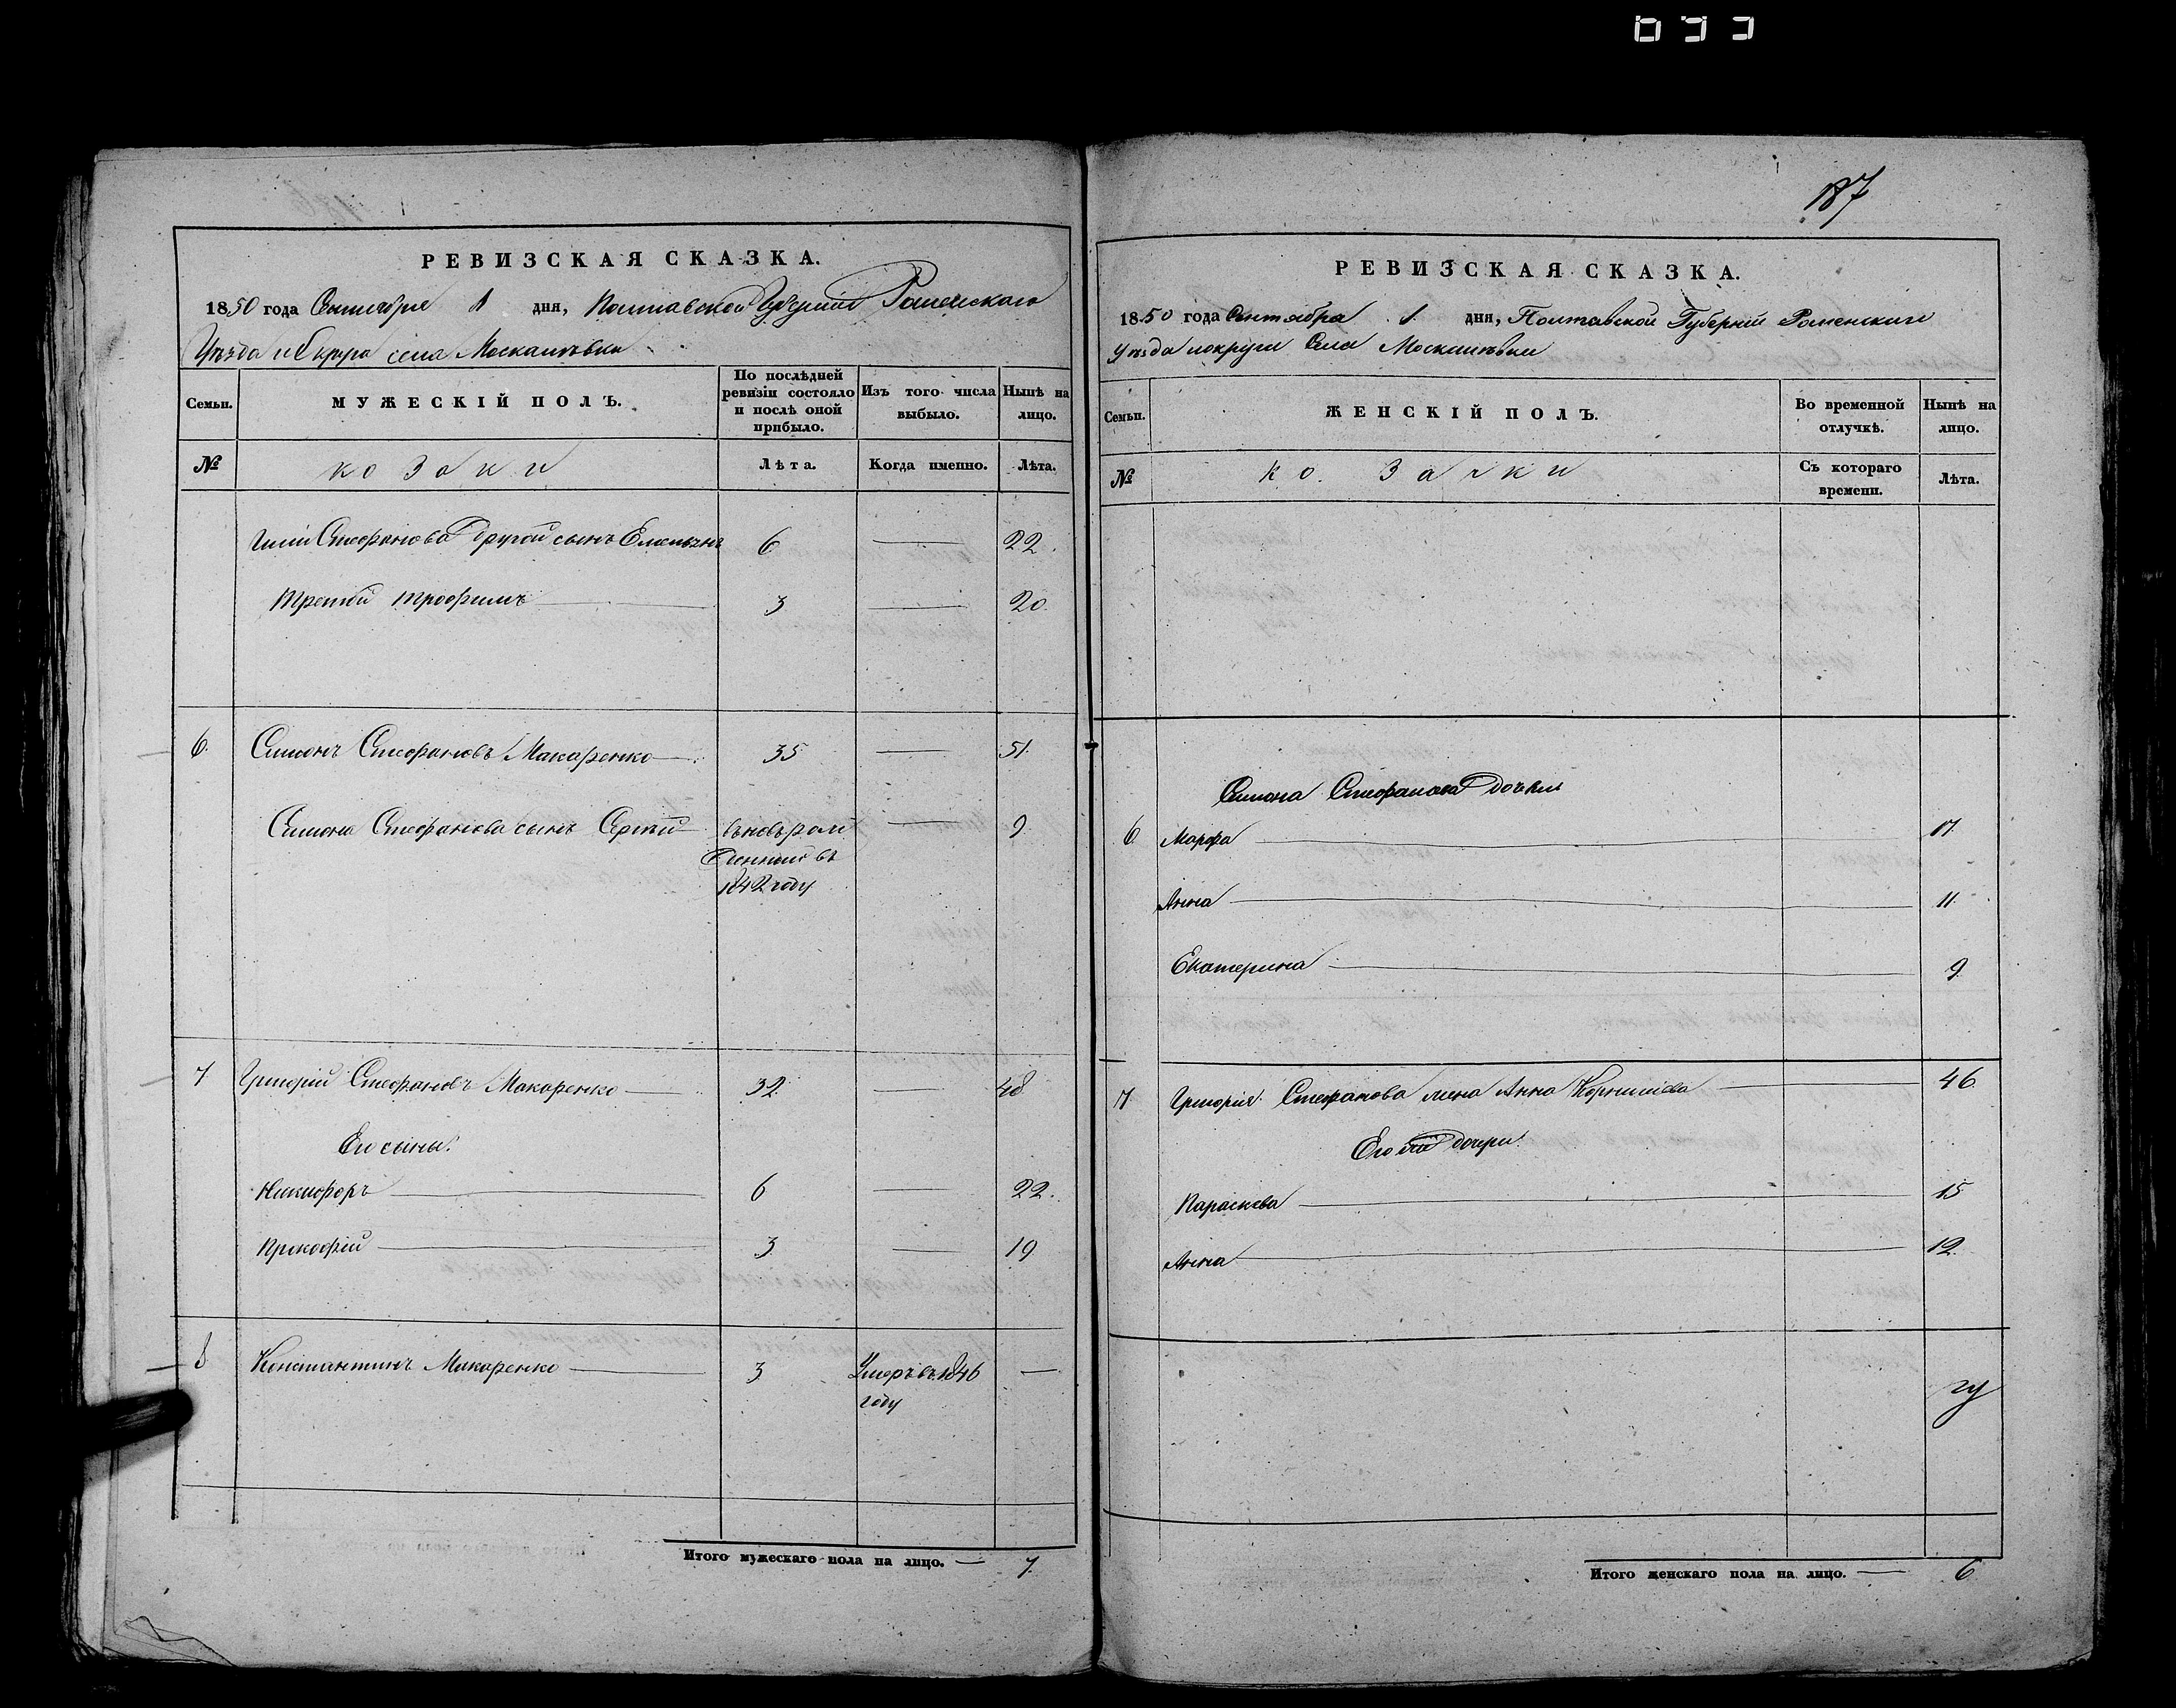 187
РЕВИЗСКАЯ СКАЗКА.
1850 года Сентября 1 дня, Полтавской Губернии Роменского
Уѣзда и Округа села Москалѣвки
Семьи.
МУЖЕСКІЙ ПОЛЪ.
По послѣдней ревизіи состояло и послѣ оной прибыло.
Изъ того числа выбыло.
Нынѣ на лицо.
№
козаки
Лѣта.
Когда именно.
Лѣта.
Стефанова другой сынъ Емельянъ 6 — 22.
третій трофимъ — 3 — 20.
6. Симонъ Стефановъ Макаренко — 35 — 51.
Симона Стефанова сынъ Сергѣй вновь рож
денный въ
1842 году — 9.
7 Григорій Стефановъ Макаренко — 32 — 48.
Его сыны:
Никифоръ — 6 — 22.
Прокофій — 3 — 19
8 Константинъ Макаренко — 3 Умеръ въ 1846
году —
Итого мужескаго пола на лицо. — 7.
РЕВИЗСКАЯ СКАЗКА.
1850 года Сентября 1. дня, Полтавской Губерніи Роменскаго
Уѣзда и округи Села Москалѣвки
Семьи.
ЖЕНСКІЙ ПОЛЪ.
Во временной отлучкѣ.
Нынѣ на лицо.
№
козачки
Съ котораго времени.
Лѣта.
Симона Стефанова дочки
6 Марфа — 17.
Анна — 11.
Екатерина — 9
7 Григорія Стефанова жена Анна Корнилиева — 46
дочери.
Параскева — 15
Анна — 12.
Итого женскаго пола на лицо. — 6